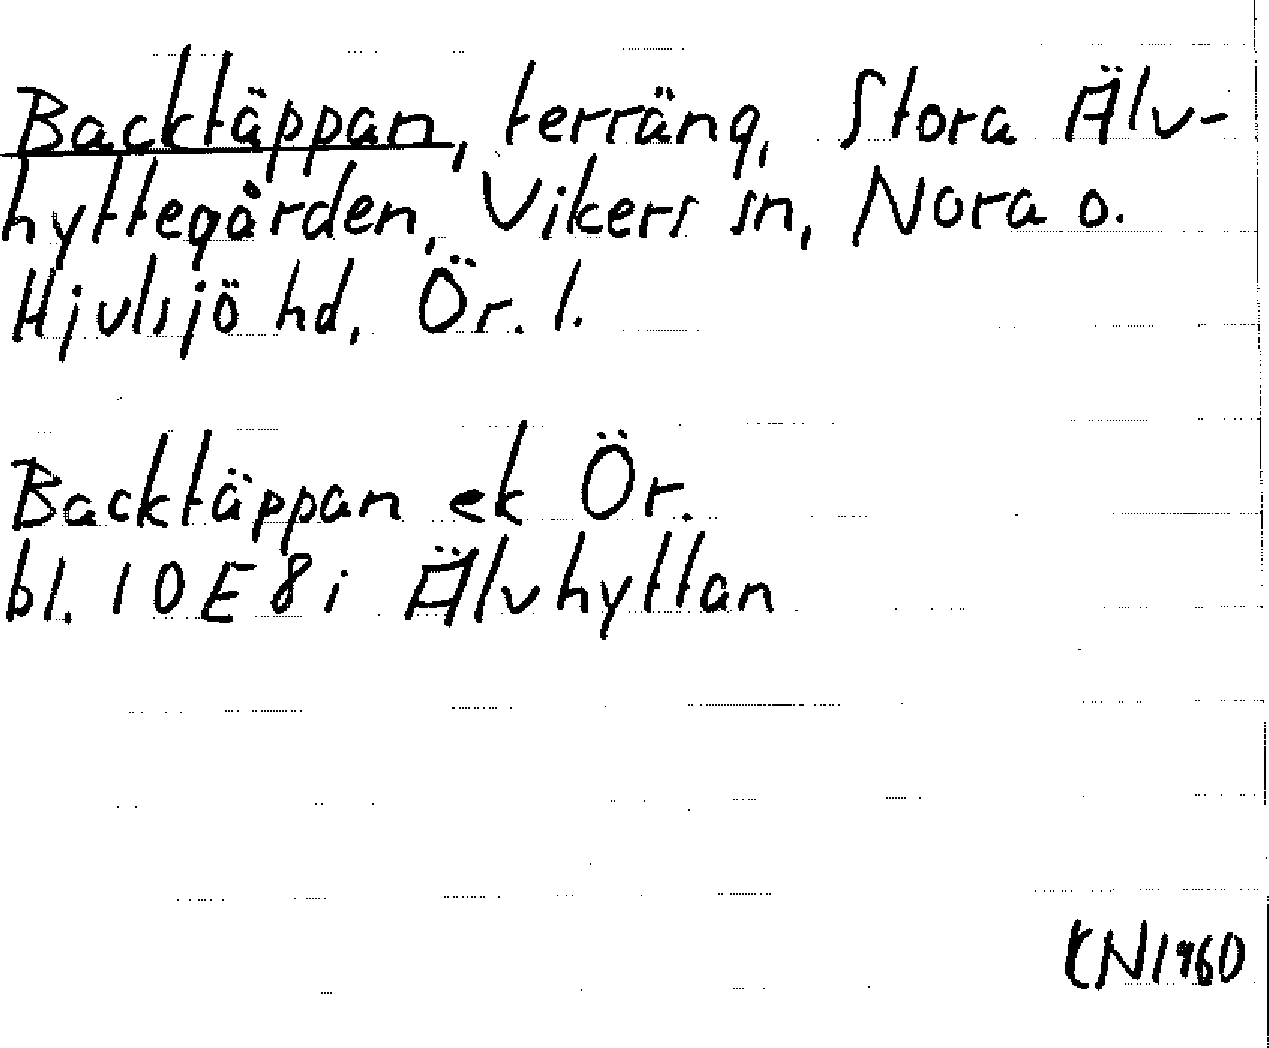 Backtäppan, terräng, Stora Älv-
hyttegården, Vikers sn, Nora o.
Hjulsjö hd, Ör. l.
Backtäppan ek Ör.
bl. 10E8i Älvhyttan
KN1960